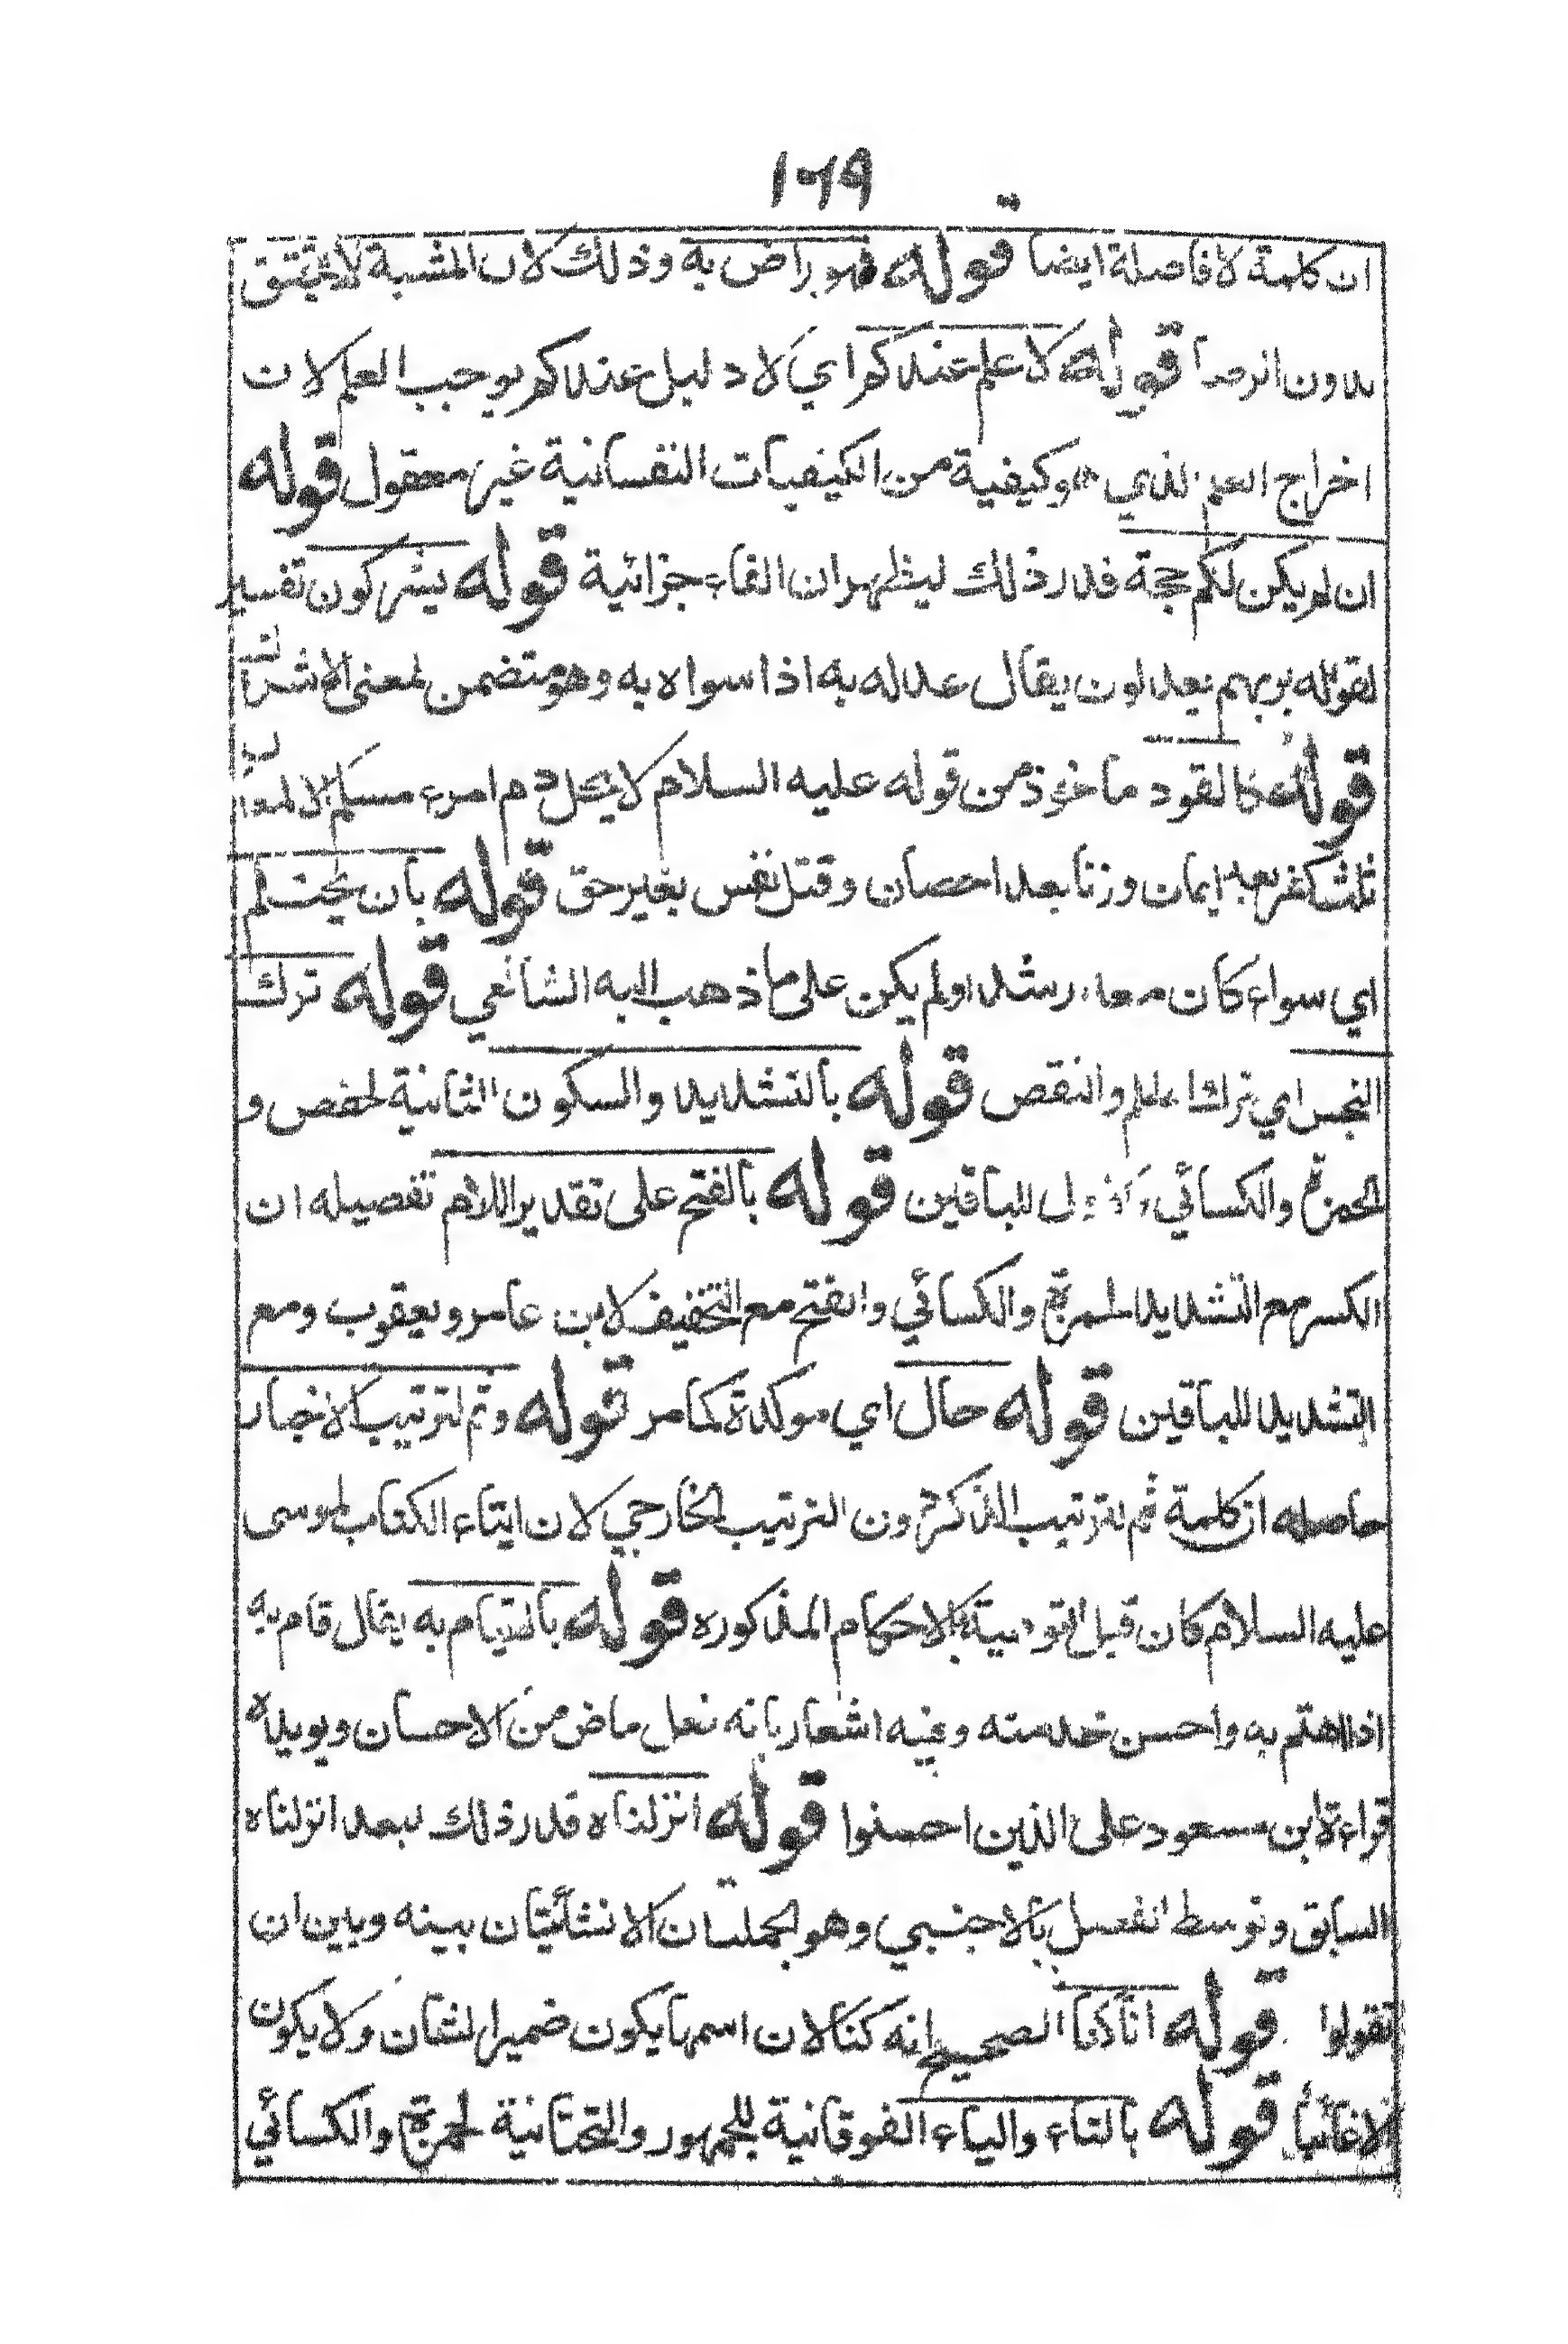 ١٦٩
ان كلمة لا فاصلة ايضا قوله فهو راض به وذلك لان المشبة لا تتحقق
بدون الرضا قوله لا علم عندكم اي لا دليل عندكم يوجب العلم لان
اخراج العلم الذي هو كيفية من الكيفيات النفسانية غير معقول قوله
ان لم يكن لكم حجة قدر ذلك ليظهر ان الفاء جزائية قوله يشركون تفسير
لقوله بربهم يعدلون يقال عدله به اذا سواه به وهو متضمن لمعنى الاشراك
قوله كالقود ماخوذ من قوله عليه السلام لا يحل دم امرء مسلم الا
ثلث كفر بعد ايمان وزنا بعد احصان وقتل نفس بغير حق قوله بان يحتلم
اي سواء كان معه رشد اولم يكن على ما ذهب اليه الشافعي قوله ترك
النجس اي ترك الظلم والنقص قوله بالتشديد والسكون الثانية لحفص و
لحمزة والكسائي والاولى للباقين قوله بالفتح على تقدير اللام تفصيله ان
الكسر مع التشديد لحمزة والكسائي والفتح مع التخفيف لابن عامر ويعقوب ومع
التشديد للباقين قوله حال اي موكدة كما مر قوله وثم لترتيب الاخبار
حاصله ان كلمة ثم لترتيب الذكر دون الترتيب الخارجي لان ايتاء الكتاب لموسى
عليه السلام كان قبل التوصية بالاحكام المذكوره قوله بالقيام به يقال قام به
اذا اهتم به واحسن خدمته وفيه اشعار بانه فعل ماض من الاحسان ويويده
قراءة ابن مسعود على الذين احسنوا قوله انزلناه قدر ذلك لبعد انزلناه
السابق وتوسط الفصل بالاجنبي وهو الجملتان الانشائيتان بينه وبين ان
تقولوا قوله انا كنا الصحيح انه كنا لان اسمها يكون ضمير الشان ولا يكون
الا غائبا قوله بالتاء والياء الفوقانية للجمهور والتحتانية لحمزة والكسائي